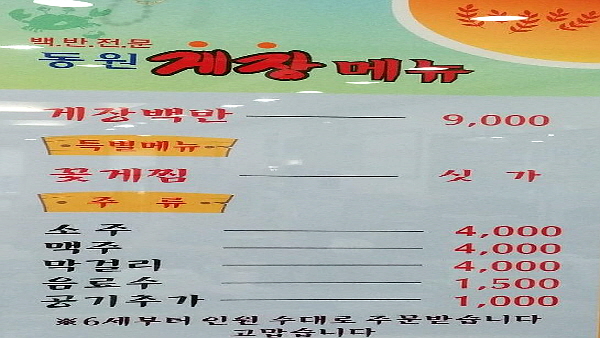 백.반.전.문
동원 게장 메뉴
게장백반 9,000
특별메뉴
꽃게찜 싯가
주류
소주 4,000
맥주 4,000
막걸리 4,000
음료수 1,500
공기추가 1,000
※6세부터 인원 수대로 주문받습니다
고맙습니다